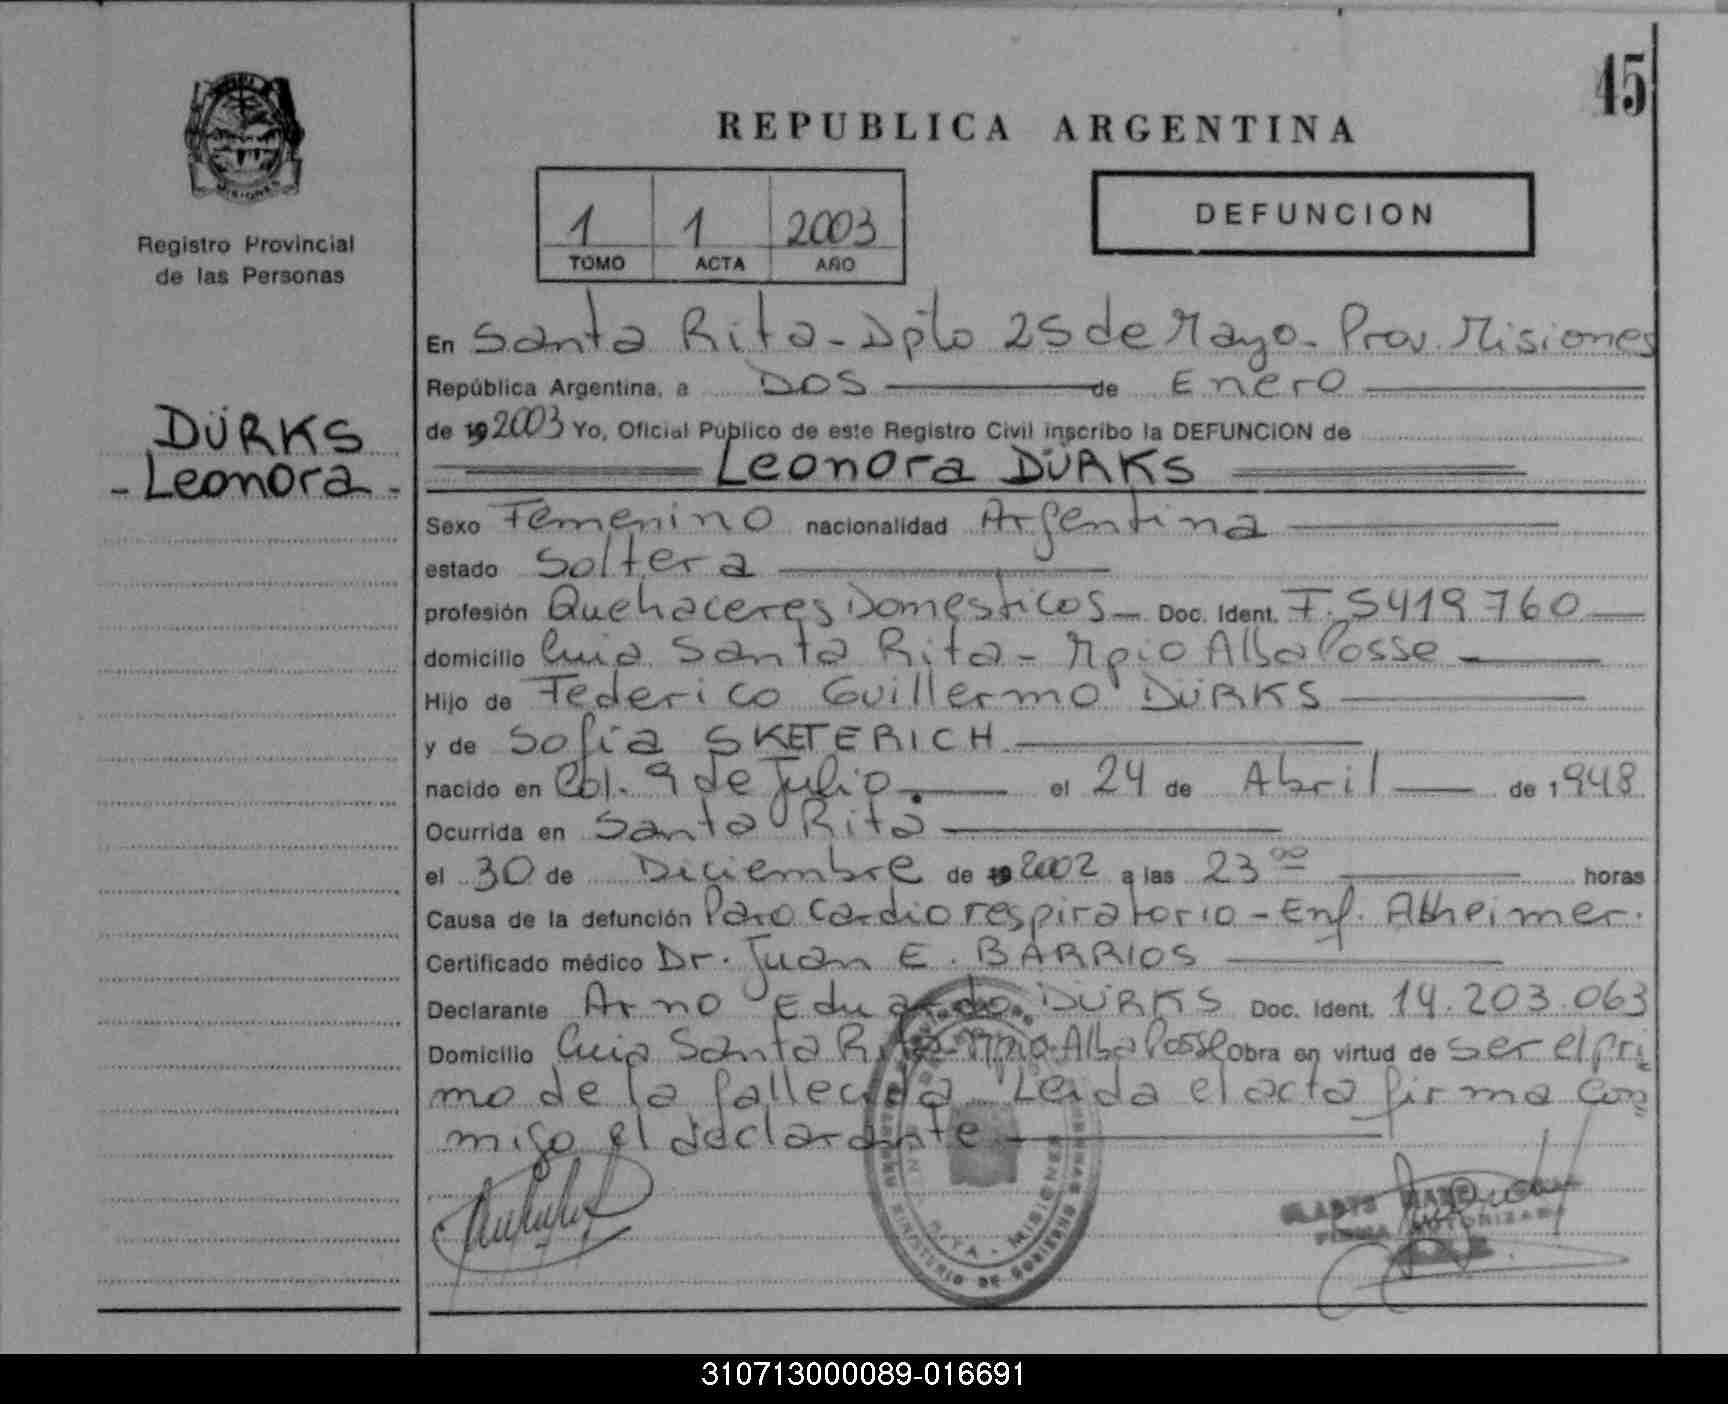 45
REPUBLICA ARGENTINA
1 1 2003
TOMO ACTA AÑO
DEFUNCION
Registro Provincial
de las Personas
DÜRKS
- Leonora -
En Santa Rita - Dpto 25 de Mayo - Prov. Misiones
República Argentina, a DOS de Enero
de 19 2003 Yo, Oficial Público de este Registro Civil inscribo la DEFUNCION de
Leonora DÜRKS
Sexo Femenino nacionalidad Argentina
estado Soltera
profesión Quehaceres Domésticos - Doc. Ident. F. 5419760
domicilio Cnia Santa Rita - Mpio Alba Posse
Hijo de Federico Guillermo DÜRKS
y de Sofía SKETERICH
nacido en Col. 9 de Julio. el 24 de Abril de 1948
Ocurrida en Santa Rita
el 30 de Diciembre de 19 2002 a las 23 00 horas
Causa de la defunción Paro Cardio respiratorio - Enf. Alheimer.
Certificado médico Dr. Juan E. BARRIOS
Declarante Arno Eduardo DÜRKS Doc. Ident. 14.203.063
Domicilio Cnia Santa Rita - Mpio Alba Posse Obra en virtud de ser el pri
mo de la fallecida. Leida el acta firma con
migo el declarante
MINISTERIO DE GOBIERNO
RITA - MISIONES
GLADYS
FIRMA AUTORIZADA
310713000089-016691